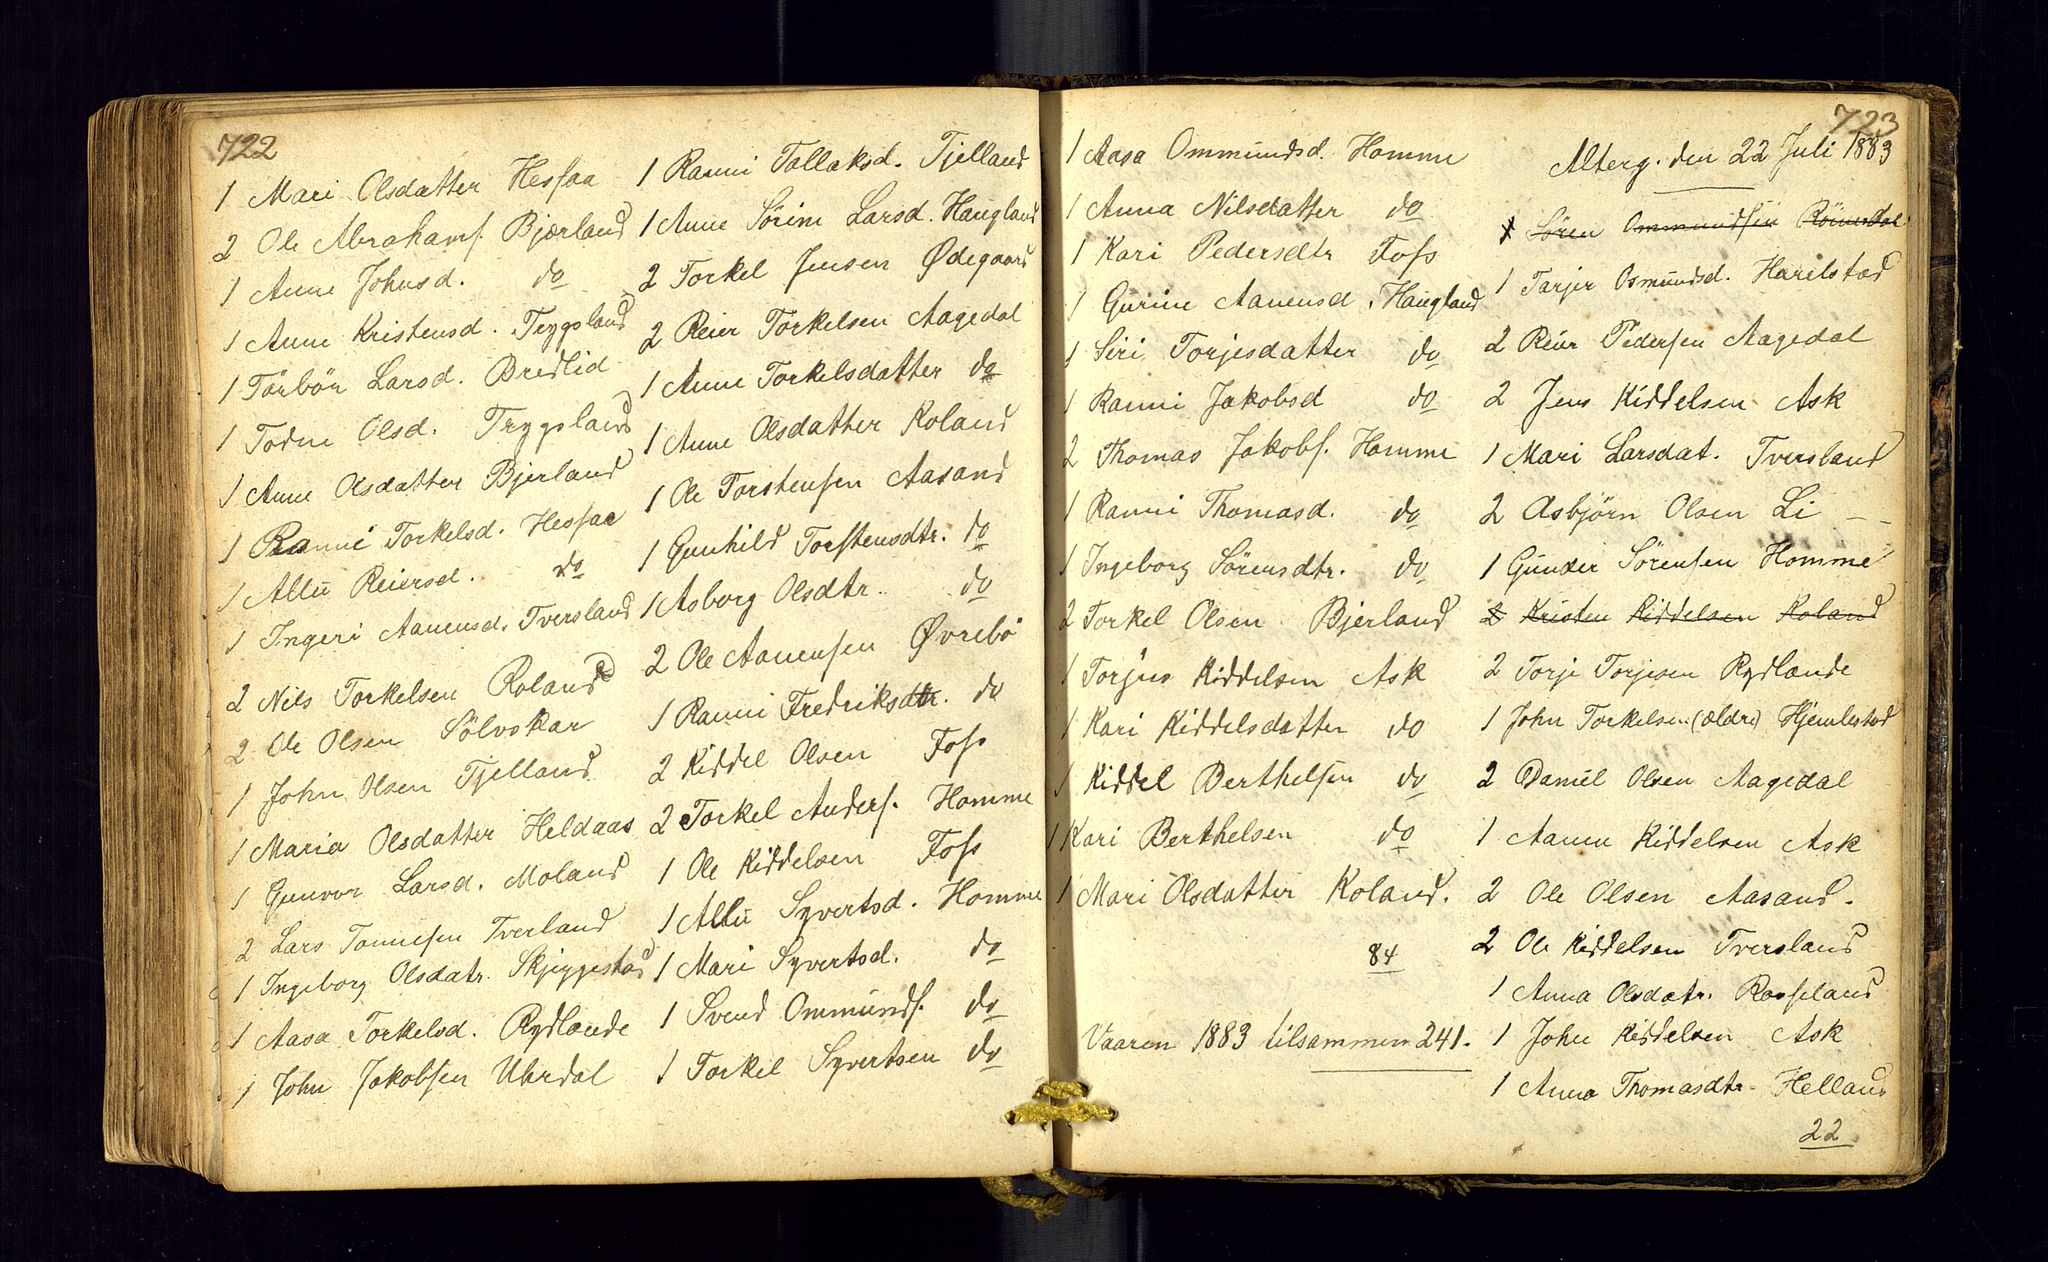 722
1 Mari Olsdatter Hesfaa
2 Ole Abrahams. Bjærland
1 Anne Johnsd. do
1 Anne Kristensd. Trygsland
1 Törbör Larsd. Bredlid
1 Todne Olsd. Trygsland
1 Anne Olsdatter Bjerland
1 Ranni Torkelsd. Hesfaa
1 Allu Reiersd. do
1 Ingeri Aanensd. Tversland
2 Nils Torkelsen Roland
2 Ole Olsen Sölvskar
1 John Olsen Tjelland
1 Maria Olsdatter Heldaas
1 Gunvor Larsd. Moland
2 Lars Tonnesen Tverland
1 Ingeborg Olsdatr. Skjeggestad
1 Aasa Torkelsd. Rydlande
1 John Jakobsen Uhrdal
1 Ranni Tallaksd. Tjelland
1 Anne Sörine Larsd. Haugland
2 Torkel Jensen Ødegaard
2 Reier Torkelsen Aagedal
1 Anne Torkelsdatter do
1 Anne Olsdatter Koland
1 Ole Torstensen Aasand
1 Gunhild Torstensdtr. do
1 Asborg Olsdtr. do
2 Ole Aanensen Øvrebö
1 Ranni Fredriksdtr. do
2 Kiddel Olsen Foss
2 Torkel Anders. Homme
1 Ole Kiddelsen Foss
1 Allu Syvertsd. Homme
1 Mari Syvertsd. do
1 Svend Ommunds. do
1 Torkel Syvertsen do
1 Aasa Ommundsd. Homme
1 Anna Nilsdatter do
1 Kari Pedersdtr Foss
1 Gurine Aanensd. Haugland
1 Siri Torjesdatter do
1 Ranni Jakobsd do
2 Thomas Jakobs. Homme
1 Ranni Thomasd. do
1 Ingeborg Sörensdtr. do
2 Torkel Olsen Bjerland
1 Torjus Kiddelsen Ask
1 Kari Kiddelsdatter do
1 Kiddel Berthelsen do
1 Kari Berthelsen do
1 Mari Olsdatter Koland.
84
Vaaren 1883 tilsammen 241.
723
Alterg. den 22 Juli 1883
1 Sören Ommundsen
1 Tarjer Osmundsd. Harelstad
2 Reier Pedersen Aagedal
2 Jens Kiddelsen Ask
1 Mari Larsdat. Tversland
2 Asbjörn Olsen Li
1 Gunder Sörensen Homme
2 Kristen Kiddelsen Koland
2 Torje Torjesen Rydlande
1 John Torkelsen (ældre) Hjemlestad
2 Daniel Olsen Aagedal
1 Aanen Kiddelsen Ask
2 Ole Olsen Aasand.
2 Ole Kiddelsen Tversland
1 Anna Olsdatr. Rosseland
1 John Kiddelsen Ask
1 Anna Thomasdtr Helland
22